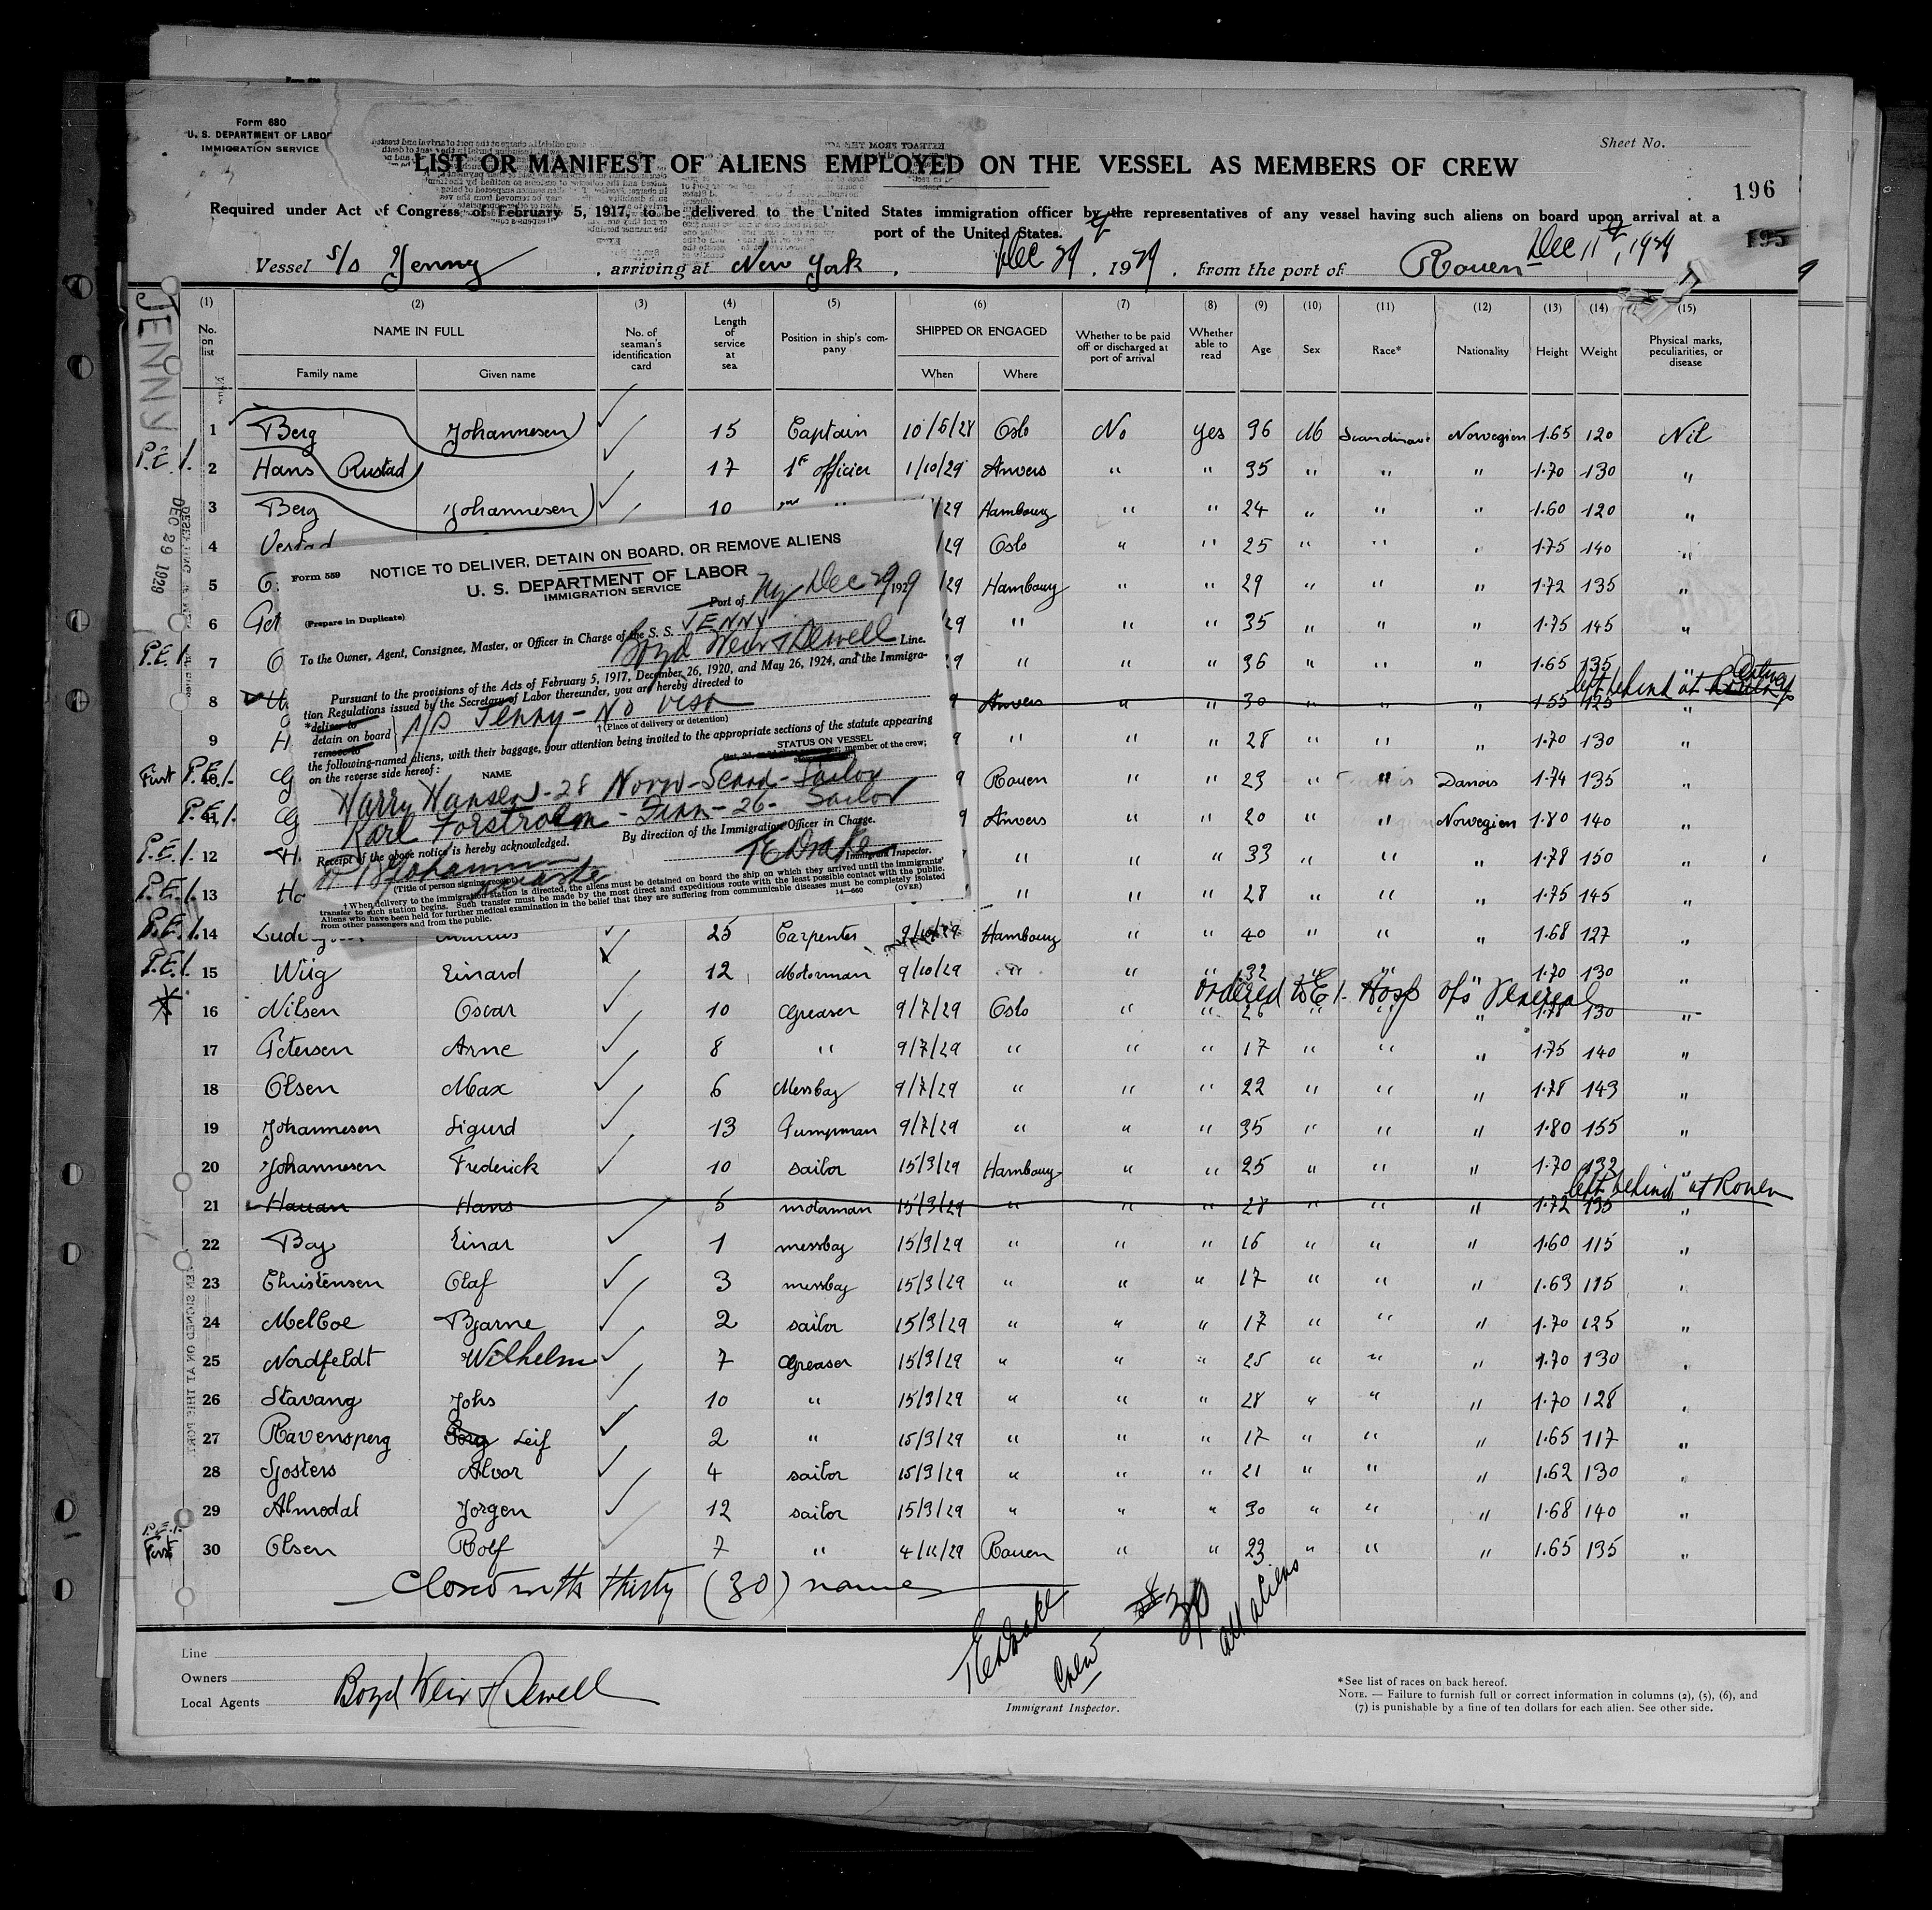 Form 680
U. S. DEPARTMENT OF LABOR
IMMIGRATION SERVICE
Sheet No.
LIST OR MANIFEST OF ALIENS EMPLOYED ON THE VESSEL AS MEMBERS OF CREW
196
195
Required under Act of Congress of February 5, 1917, to be delivered to the United States immigration officer by the representatives of any vessel having such aliens on board upon arrival at a
port of the United States.
Vessel S/S Jenny, arriving at New York, Dec 29, 1929, from the port of Rouen Dec 11th, 1929
JENNY
DEC 29 1929
(1) (2) (3) (4) (5) (6) (7) (8) (9) (10) (11) (12) (13) (14) (15)
No. on list NAME IN FULL No. of seaman's identification card Length of service at sea Position in ship's company SHIPPED OR ENGAGED Whether to be paid off or discharged at port of arrival Whether able to read Age Sex Race* Nationality Height Weight Physical marks, peculiarities, or disease
Family name Given name When Where
1 Berg Johannesen 15 Captain 10/5/28 Oslo No yes 36 M Scandinave Norvegien 1.65 120 Nil
P.E.I. 2 Hans Rustad 17 1r officier 1/10/29 Anvers " " 35 " " " 1.70 130 "
3 Berg Johannesen 10 " /29 Hambourg " " 24 " " " 1.60 120 "
4 /29 Oslo " " 25 " " " 1.75 140 "
5 /29 Hambourg " " 29 " " " 1.72 135 "
6 29 " " " 35 " " " 1.75 145 "
P.E.I. 7 9 " " " 36 " " " 1.65 135 "
left behind at Rouen
8 9 Anvers " " 30 " " " 1.55 125 "
9 9 " " " 28 " " " 1.70 130 "
First P.E.I. 10 9 Rouen " " 23 " " Danois 1.74 135 "
P.E.I. 11 9 Anvers " " 20 " " Norvegien 1.80 140 "
P.E.I. 12 " " " 33 " " " 1.78 150 "
P.E.I. 13 " " " 28 " " " 1.75 145 "
P.E.I. 14 25 Carpenter 9/10/29 Hambourg " " 40 " " " 1.68 127 "
P.E.I. 15 Wiig Einard 12 Motorman 9/10/29 " " " 32 " " " 1.70 130 "
ordered to E I. Hosp ofs Venereal
16 Nilsen Oscar 10 Greaser 9/7/29 Oslo " " 26 " " " 1.78 130 "
17 Petersen Arne 8 " 9/7/29 " " " 17 " " " 1.75 140 "
18 Olsen Max 6 Messboy 9/7/29 " " " 22 " " " 1.78 143 "
19 Johannesen Sigurd 13 Pumpman 9/7/29 " " " 35 " " " 1.80 155 "
20 Johannesen Frederick 10 sailor 15/3/29 Hambourg " " 25 " " " 1.70 133 "
left behind at Rouen
21 Hauan Hans 5 motorman 15/3/29 " " " 28 " " " 1.72 135 "
22 Boy Einar 1 messboy 15/3/29 " " " 16 " " " 1.60 115 "
23 Christensen Olaf 3 messboy 15/3/29 " " " 17 " " " 1.63 115 "
24 Melboe Bjarne 2 sailor 15/3/29 " " " 17 " " " 1.70 125 "
25 Nordfeldt Wilhelm 7 Greaser 15/3/29 " " " 25 " " " 1.70 130 "
26 Stavang Johs 10 " 15/3/29 " " " 28 " " " 1.70 128 "
27 Ravensperg Leif 2 " 15/3/29 " " " 17 " " " 1.65 117 "
28 Sjosters Alvar 4 sailor 15/3/29 " " " 21 " " " 1.62 130 "
29 Almedal Jorgen 12 sailor 15/3/29 " " " 30 " " " 1.68 140 "
P.E.I. First 30 Olsen Rolf 7 " 4/12/29 Rouen " " 23 " " " 1.65 135 "
Closed with thirty (30) names
TEDrake
Crew
30
all aliens
Form 559
NOTICE TO DELIVER, DETAIN ON BOARD, OR REMOVE ALIENS
U. S. DEPARTMENT OF LABOR
IMMIGRATION SERVICE
Port of NY Dec 29, 1929
(Prepare in Duplicate)
To the Owner, Agent, Consignee, Master, or Officer in Charge of the S. S. JENNY
Boyd Weir & Sewell Line.
Pursuant to the provisions of the Acts of February 5, 1917, December 26, 1920, and May 26, 1924, and the Immigra-
tion Regulations issued by the Secretary of Labor thereunder, you are hereby directed to
*deliver to
detain on board
remove to
s/s Jenny - No visa
†(Place of delivery or detention)
the following-named aliens, with their baggage, your attention being invited to the appropriate sections of the statute appearing
on the reverse side hereof:
NAME
STATUS ON VESSEL
member of the crew;
Harry Hansen - 28 Norw - Scand - Sailor
Karl Forstrolm - Finn - 26 - Sailor
By direction of the Immigration Officer in Charge.
Receipt of the above notice is hereby acknowledged.
TEDrake
Immigrant Inspector.
(Title of person signing receipt)
† When delivery to the immigration station is directed, the aliens must be detained on board the ship on which they arrived until the immigrants'
transfer to such station begins. Such transfer must be made by the most direct and expeditious route with the least possible contact with the public.
Aliens who have been held for further medical examination in the belief that they are suffering from communicable diseases must be completely isolated
from other passengers and from the public.
14—660
(OVER)
Line
Owners
Local Agents Boyd Weir & Sewell
Immigrant Inspector.
*See list of races on back hereof.
NOTE. — Failure to furnish full or correct information in columns (2), (5), (6), and
(7) is punishable by a fine of ten dollars for each alien. See other side.